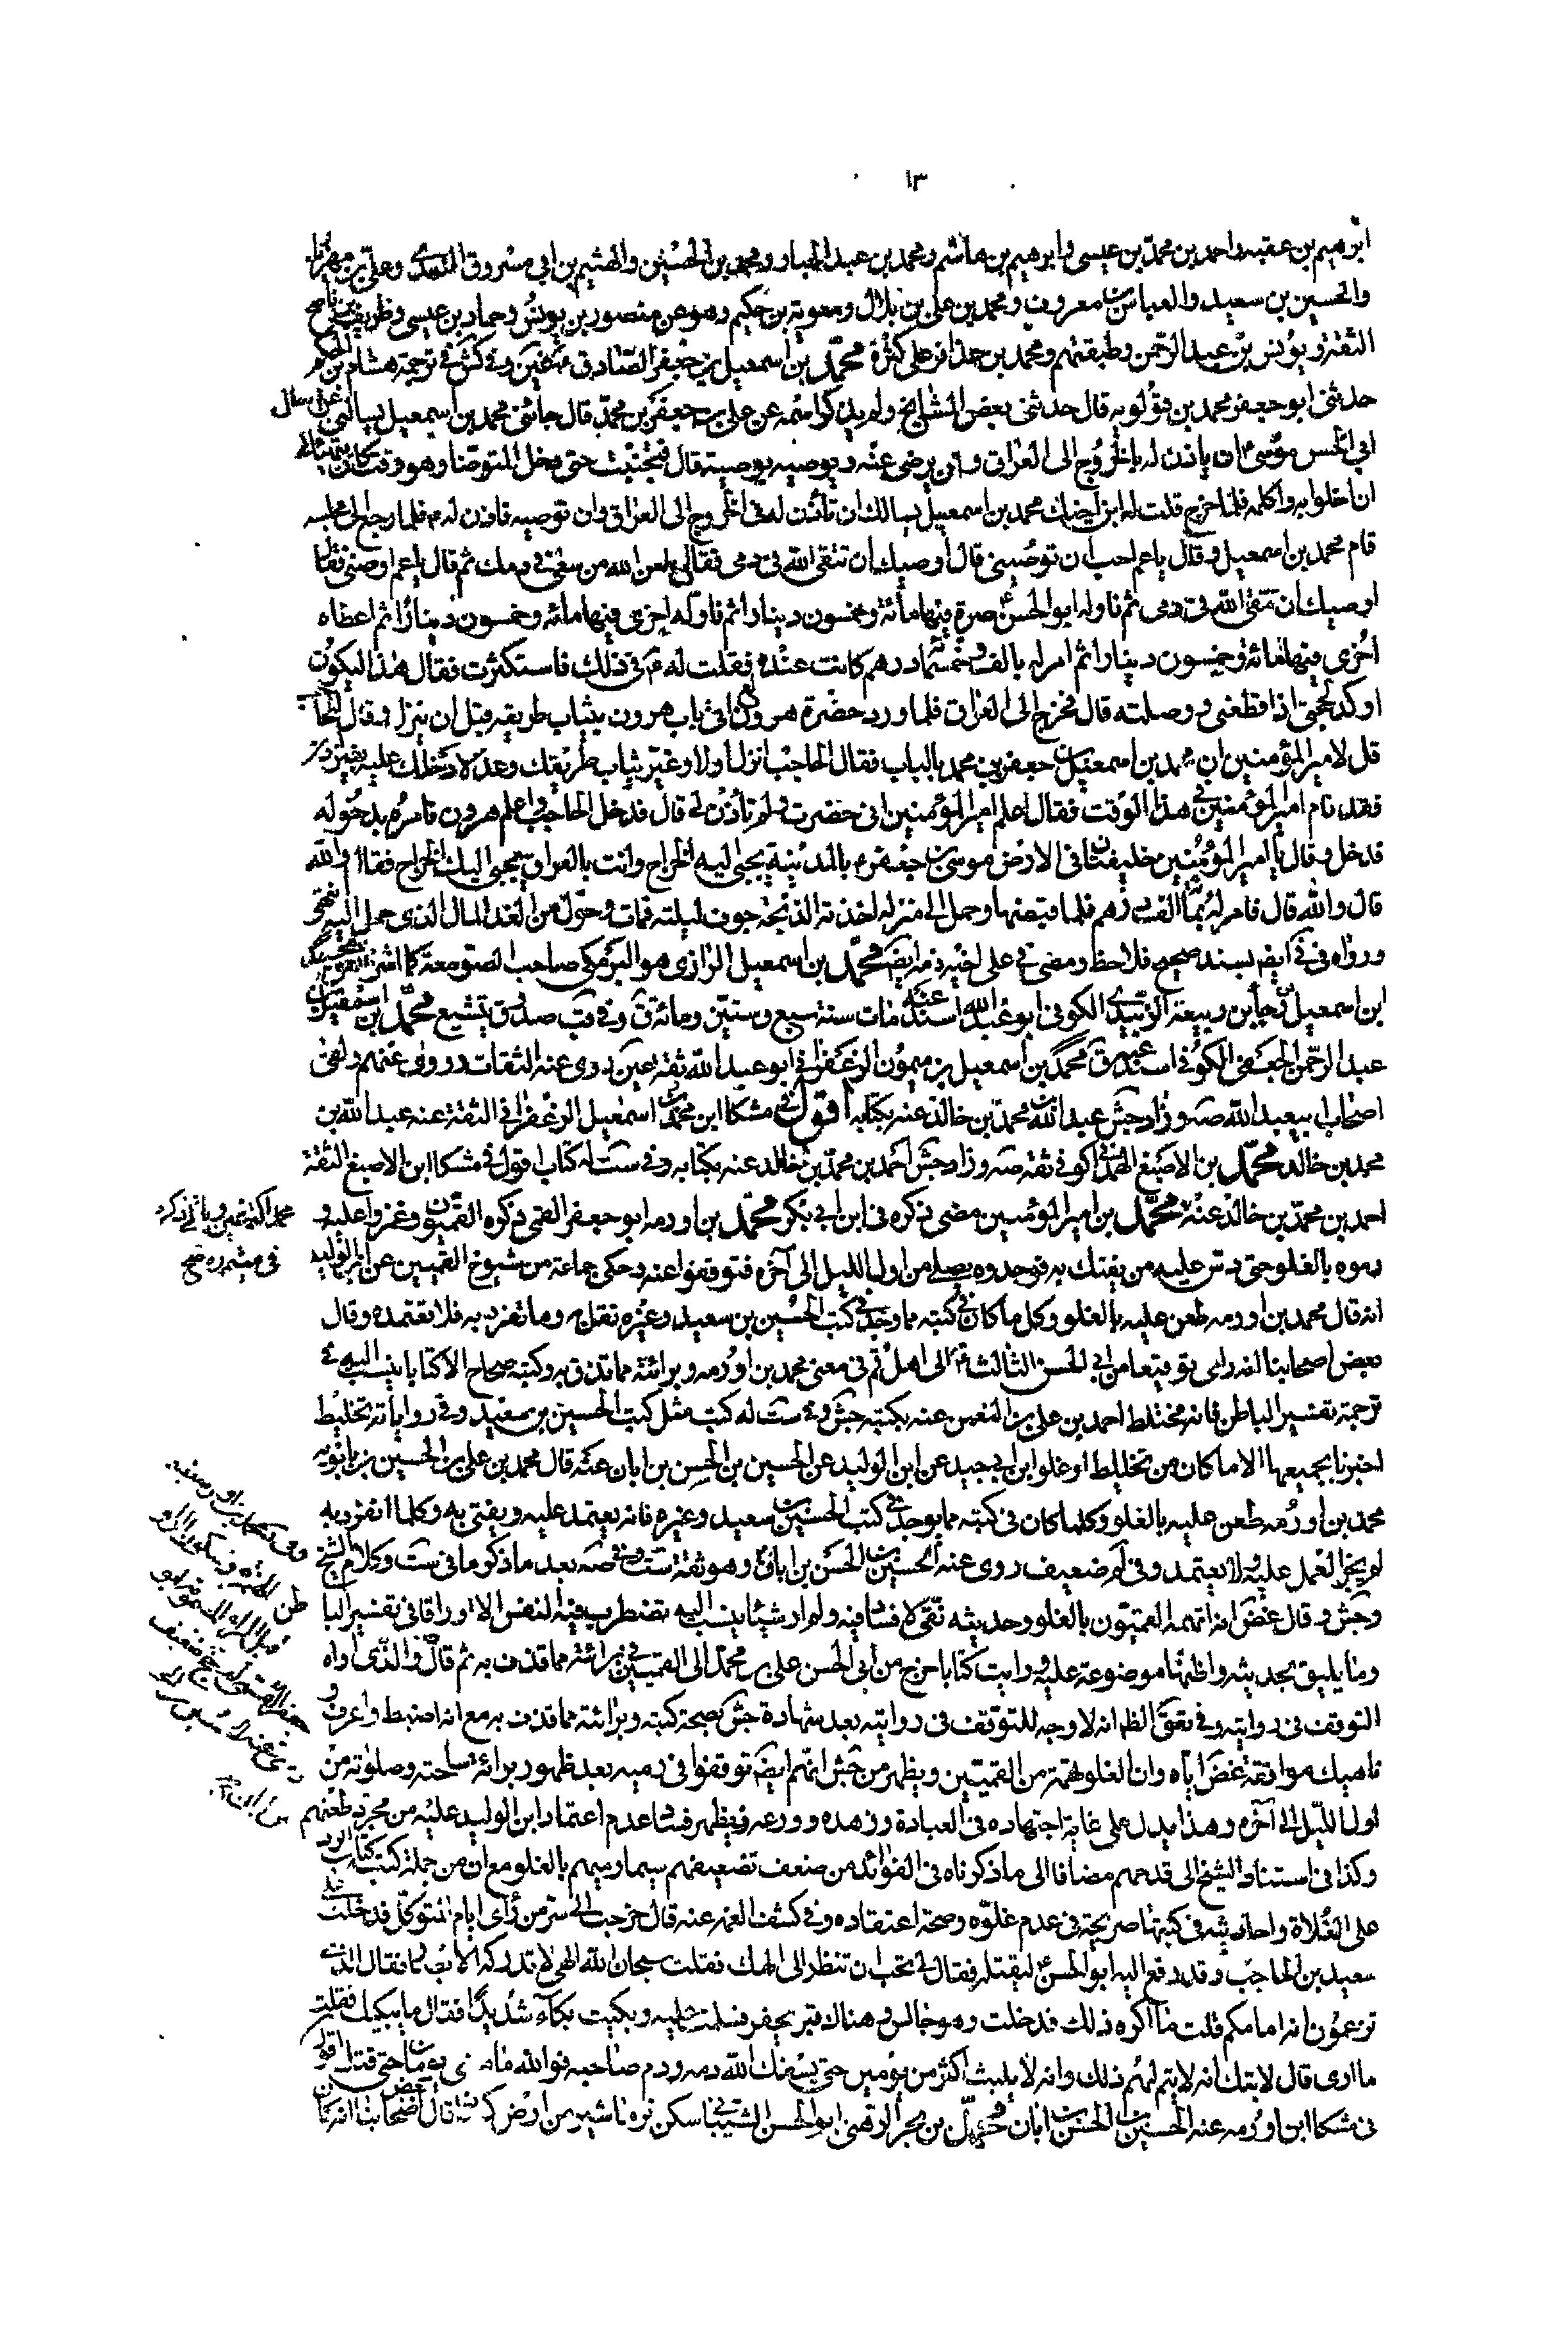 ١٣
ابرهيم بن عقبه واحمد بن محمد بن عيسى وابرهيم بن هاشم ومحمد بن عبد الجبار ومحمد بن الحسين والهيثم بن ابى مسروق النهدى وعلى بن مهزيار
والحسين بن سعيد والعباس بن معروف ومحمد بن على بن بلال ومعوية بن حكيم وهو عن منصور بن يونس وحماد بن عيسى وظريف بن ناصح
الثقة ويونس بن عبد الرحمن وطبقتهم ومحمد بن عذافر على كثرة محمد بن اسمعيل بن جعفر الصادق وفى كش فى ترجمة هشام بن الحكم
حدثنى ابو جعفر محمد بن قولويه قال حدثنى بعض المشايخ ولم يذكر اسمه عن على بن جعفر بن محمد قال جائنى محمد بن اسمعيل يسالنى ان اسال
ابى الحسن موسى ان ياذن له بالخروج الى العراق وان يرضى عنه ويوصيه بوصية قال فتجنبت حتى دخل المتوضا وهو وقت كان يتهيأ لى
ان اخلو به واكلمه فلما خرج قلت له ابن اخيك محمد بن اسمعيل يسالك ان تأذن له فى الخروج الى العراق وان توصيه فاذن له فلما رجع الى مجلسه
قام محمد بن اسمعيل وقال يا عم احب ان توصينى قال اوصيك ان تتقى الله فى دمى فقال لعن الله من سعى فى دمك ثم قال يا عم اوصنى فقال
اوصيك ان تتقى الله فى دمى ثم ناوله ابو الحسن صرة فيها مائة وخمسون دينارا ثم ناوله اخرى فيها مائة وخمسون دينارا ثم اعطاه
اخرى فيها مائة وخمسون دينارا ثم امر له بالف وخمسمائة درهم كانت عنده فقلت له فى ذلك فاستكثرت فقال هذا ليكون
اوكد لحجتى اذا قطعنى ووصلته قال فخرج الى العراق فلما ورد حضرة هرون اتى باب هرون بثياب طريقه قبل ان ينزل وقال للحاجب
قل لامير المؤمنين ان محمد بن اسمعيل بن جعفر بن محمد بالباب فقال الحاجب انزل اولا وغير ثياب طريقك وعد لادخلك عليه بغير اذن
فقد نام امير المؤمنين فى هذا الوقت فقال اعلم امير المؤمنين انى حضرت ولم تأذن لى قال فدخل الحاجب واعلم هرون فامره بدخوله
فدخل وقال يا امير المؤمنين خليفتان فى الارض موسى بن جعفر بالمدينة يجبى اليه الخراج وانت بالعراق يجبى اليك الخراج فقال والله
قال والله قال فامر له بمائة الف درهم فلما قبضها وحمل الى منزله اخذته الذبحة جوف ليلته فمات وحول من الغد المال الذى حمل اليه انتهى
ورواه فى فى ايضا بسند صحيح فلاحظ ومضى فى على اخيه ذمه ايضا محمد بن اسمعيل الرازى هو البرمكى صاحب الصومعة كما
ابن اسمعيل بن رجا بن ربيعة الزبيدى الكوفى ابو عبد الله اسند عنه مات سنة سبع وستين ومائة ق وفى قب صدوق يتشيع محمد بن اسمعيل بن
عبد الرحمن الجعفى الكوفى اسند عنه ق محمد بن اسمعيل بن ميمون الزعفرانى ابو عبد الله ثقة عين روى عنه الثقات وروى عنهم ولقى
اصحاب ابيعبد الله صه وزاد جش عبد الله بن محمد بن خالد عنه بكتابه اقول فى مشكا ابن محمد بن اسمعيل الزعفرانى الثقة عنه عبد الله بن
محمد بن خالد محمد بن الاصبغ الهمدانى كوفى ثقة صه وزاد جش احمد بن محمد بن خالد عنه بكتابه وفى ست له كتاب اقول فى مشكا ابن الاصبغ الثقة
احمد بن محمد بن خالد عنه محمد بن امير المؤمنين مضى ذكره فى ابن ابى بكر محمد بن اورمه ابو جعفر القمى ذكره القميون وغمزوا عليه و
رموه بالغلو حتى دس عليه من يفتك به فوجدوه يصلى من اول الليل الى آخره فتوقفوا عنه وحكى جماعة من شيوخ القميين عن ابن الوليد
انه قال محمد بن اورمه طعن عليه بالغلو وكل ما كان فى كتبه مما وجد فى كتب الحسين بن سعيد وغيره نقل به وما تفرد به فلا تعتمده وقال
بعض اصحابنا انه راى توقيعا من ابى الحسن الثالث الى اهل قم فى معنى محمد بن اورمه وبرائته مما قذف به وكتبه صحاح الا كتابا ينسب اليه فى
ترجمة تفسير الباطن فانه مختلط احمد بن على بن النعمن عنه بكتبه جش وفى ست له كتب مثل كتب الحسين بن سعيد وفى رواياته تخليط
اخبرنا بجميعها الا ما كان من تخليط او غلو ابن ابى جيد عن ابن الوليد عن الحسين بن الحسن بن ابان عنه قال محمد بن على بن الحسين بن بابويه
محمد بن اورمه طعن عليه بالغلو وكلما كان فى كتبه مما يوجد فى كتب الحسين بن سعيد وغيره فانه يعتمد عليه ويفتى به وكلما انفرد به
لم يجز العمل عليه ولا يعتمد وفى لم ضعيف روى عنه الحسين بن الحسن بن ابان وهو ثقة ست وفى صه بعد ما ذكر ما فى ست وكلام الشيخ
وجش وقال غض انه اتهمه القميون بالغلو وحديثه نقى لا فساد فيه ولم ار شيئا ينسب اليه تضطرب فيه النفس الا اوراقا فى تفسير البا
وما يليق بحديثه واظنها موضوعة عليه ورايت كتابا خرج من ابى الحسن على بن محمد الى القميين فى برائته مما قذف به ثم قال والذى اراه
التوقف فى روايته وفى تعق الظ انه لا وجه للتوقف فى روايته بعد شهادة جش بصحة كتبه وبرائته مما قذف به مع انه اضبط واعرف و
ناهيك موافقة غض اياه وان الغلو تهمة من القميين ويظهر من جش انهم ايضا توقفوا فى رميه بعد ظهور برائة ساحته وصلوته من
اول الليل الى آخره وهذا يدل على غاية اجتهاده فى العبادة وزهده وورعه فيظهر فساد عدم اعتماد ابن الوليد عليه من مجرد طعنهم
وكذا فى استناد الشيخ الى قدحهم مضافا الى ما ذكرناه فى الفوائد من ضعف تضعيفهم سيما رميهم بالغلو مع ان من جملة كتبه كتاب الرد
على الغلاة واحاديثه فى كتبنا صريحة فى عدم غلوه وصحة اعتقاده وفى كشف الغمه عنه قال خرجت الى سر من رأى ايام المتوكل فدخلت على
سعيد بن الحاجب وقد دفع اليه ابو الحسن ليقتله فقال لى تحب ان تنظر الى الهك فقلت سبحان الله الهى لا تدركه الابصار فقال الذى
تزعمون انه امامكم قلت ما اكره ذلك فدخلت وهو جالس وهناك قبر يحفر فسلمت عليه وبكيت بكآء شديدا فقال ما يبكيك فقلت
ما ارى قال لا تبك انه لا يتم لهم ذلك وانه لا يلبث اكثر من يومين حتى يسفك الله دمه ودم صاحبه فوالله ما مضى يومان حتى قتل اقول
فى مشكا ابن اورمه عنه الحسين بن الحسن بن ابان محمد بن بحر الرهنى ابو الحسن الشيبانى سكن نرماشير من ارض كرمان قال بعض اصحابنا انه كان